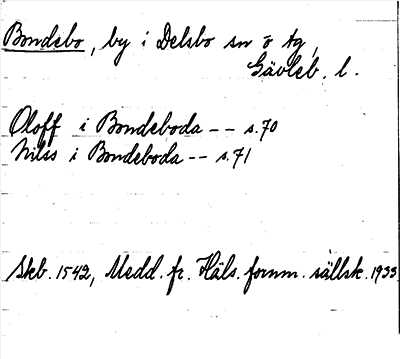 Bondebo, by i Delsbo sn o tg,
Gävleb. l.
Oloff i Bondeboda -- s. 70
Nilss i Bondeboda -- s. 71
Skb. 1542, Medd. fr. Häls. fornm. sällsk. 1933